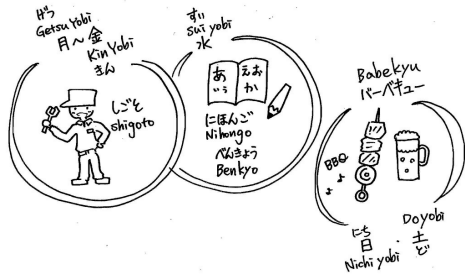 げつ
Getsu Yobi
月～金
Kin Yobi
きん
しごと
shigoto
すい
sui yobi
水
あ えお
いう か
にほんご
Nihongo
べんきょう
Benkyo
Babekyu
バーベキュー
BBQ
にち
日・土
Nichi yobi
Doyobi
ど